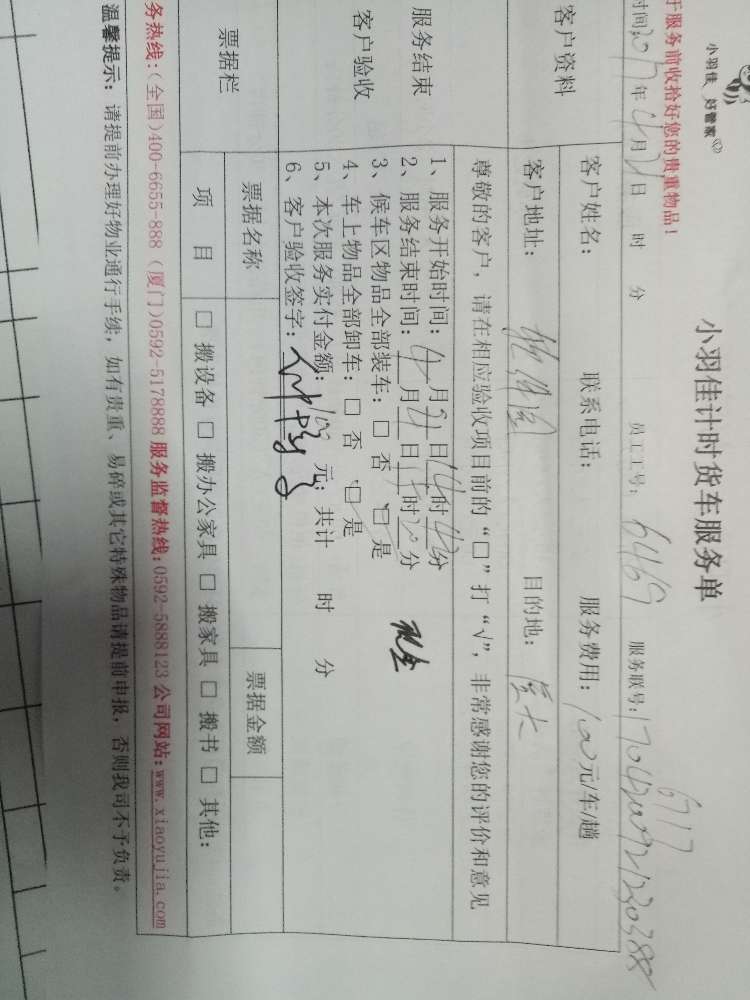 小羽佳 好管家
小羽佳计时货车服务单
于服务前收拾好您的贵重物品！
时间：2017年4月21日 时 分 员工工号：6469 服务联号：
6717
客户资料
客户姓名： 联系电话： 服务费用：100元/车/趟
客户地址： 目的地：
服务结束
客户验收
尊敬的客户，请在相应验收项目前的“□”打“√”，非常感谢您的评价和意见
1、服务开始时间：4月21日 时 分
2、服务结束时间：4月21日 时 分 现金
3、候车区物品全部装车：□ 否 □ 是
4、车上物品全部卸车：□ 否 □ 是
5、本次服务实付金额：100 元；共计 时 分
6、客户验收签字：
票据栏
票据名称 票据金额
项 目 □ 搬设备 □ 搬办公家具 □ 搬家具 □ 搬书 □ 其他：
务热线：（全国）400-6655-888 （厦门）0592-5178888 服务监督热线：0592-5888123 公司网站：www.xiaoyujia.com
温馨提示：请提前办理好物业通行手续，如有贵重、易碎或其它特殊物品请提前申报，否则我司不予负责。